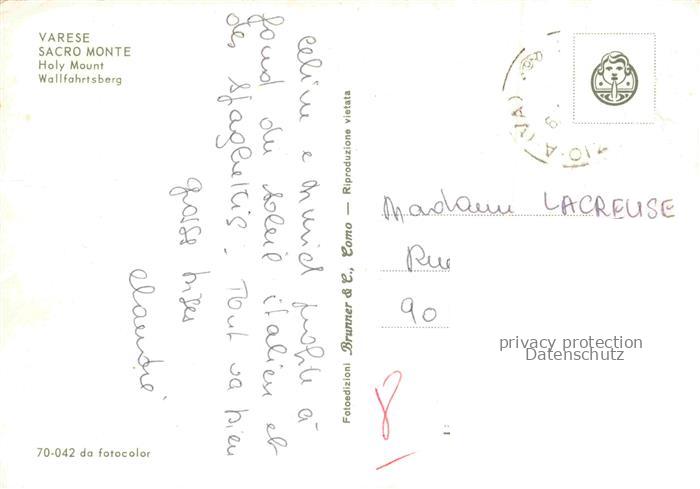 VARESE
SACRO MONTE
Holy Mount
Wallfahrtsberg
Céline e profite à
fond du soleil italien et
des spaghettis. Tout va bien
grosse bises
Claudine
Fotoedizioni Brunner & C., Como — Riproduzione vietata
Madame LACREUSE
Rue
90
8
privacy protection
Datenschutz
70-042 da fotocolor